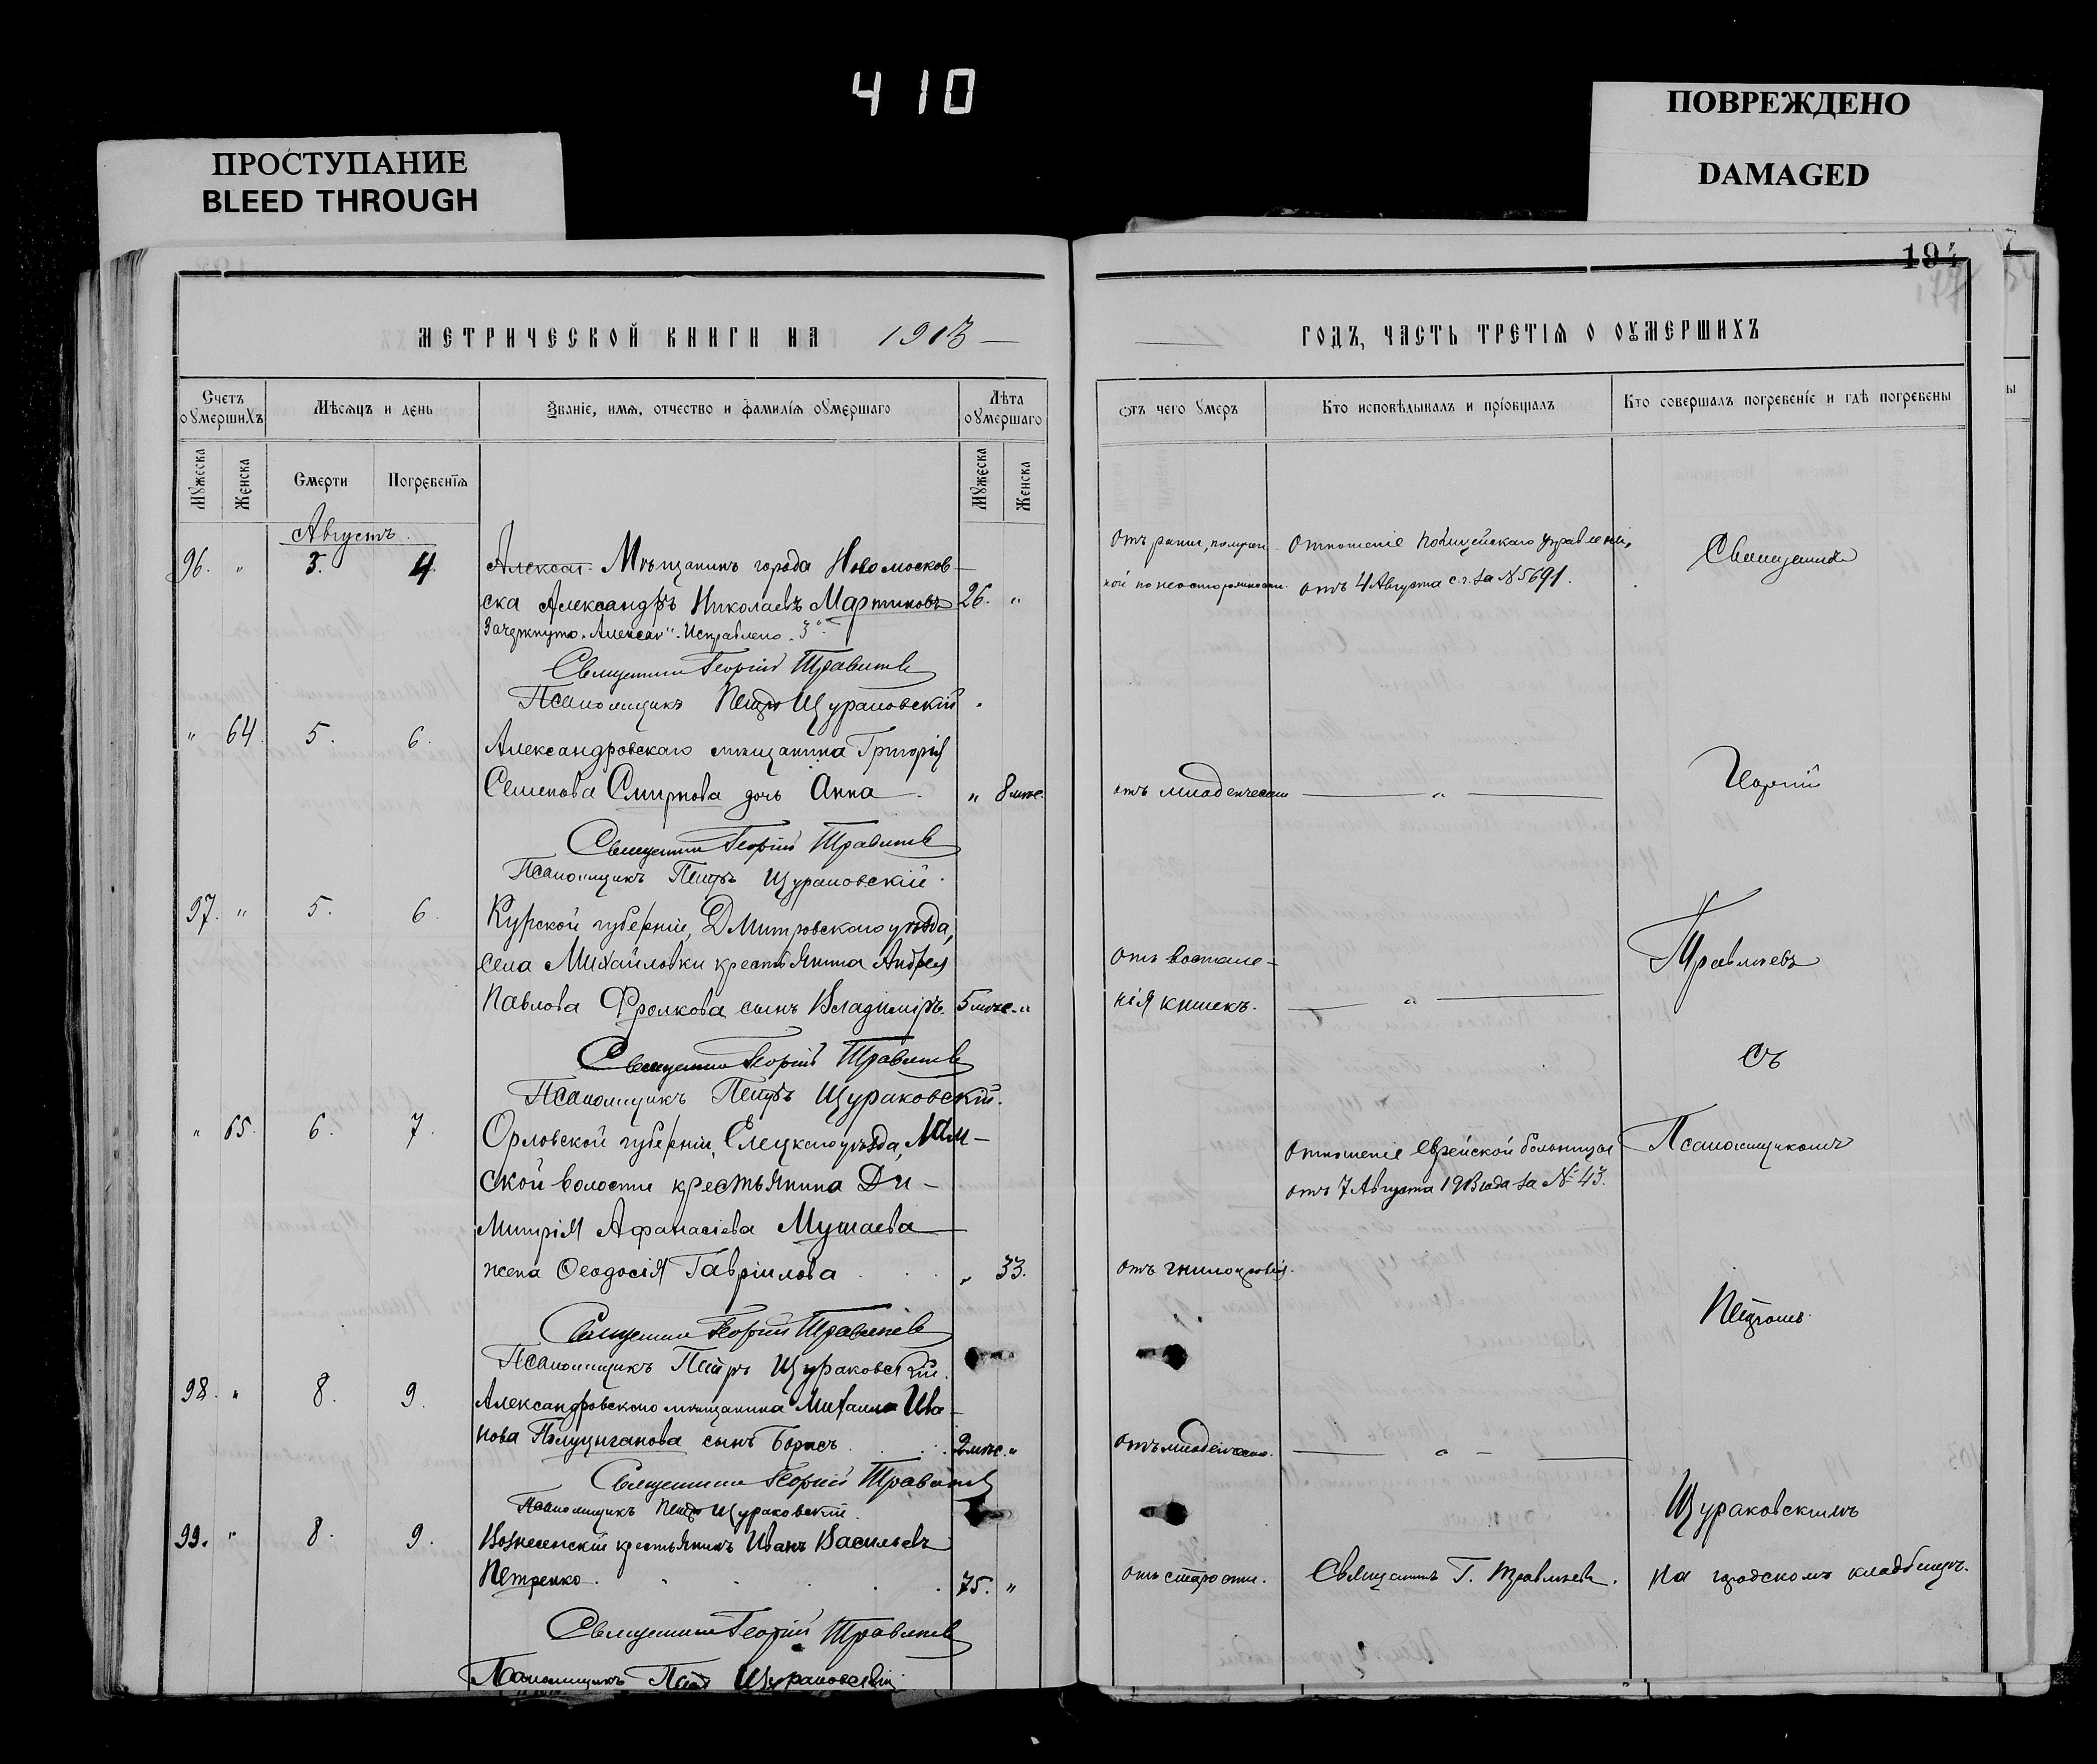 410
ПРОСТУПАНИЕ
BLEED THROUGH
ПОВРЕЖДЕНО
DAMAGED
МЕТРИЧЕСКОЙ КНИГИ НА 1913
Счетъ оумершихъ
Мѣсяцъ и день
Званіе, имя, отчество и фамилія оумершаго
Лѣта оумершаго
Мужеска
Женска
Смерти
Погребенія
Мужеска
Женска
Августъ.
96. " 3. 4. Алексан. Мѣщанинъ города Новомосков-
ска Александръ Николаевъ Мартиновъ 26. "
Зачеркнуто "Алексан". Исправлено "3".
Священникъ Георгій Травинъ
Псаломщикъ Петръ Щураковскій.
" 64. 5. 6. Александровскаго мѣщанина Григорія
Семенова Смирнова дочь Анна. " 8 мѣс.
Священникъ Георгій
Псаломщикъ Петръ Щураковскій.
97. " 5. 6. Курской губерніи, Дмитровскаго уѣзда,
села Михайловки крестьянина Андрея
Павлова Фролкова сынъ Владиміръ. 5 мѣс. "
Священникъ Георгій
Псаломщикъ Петръ Щураковскій.
" 65. 6. 7. Орловской губерніи, Елецкаго уѣзда,
ской волости крестьянина Ди-
митрія Афанасіева Мушаева
жена Ѳеодосія Гавріилова " 33.
Священникъ Георгій
Псаломщикъ Петръ Щураковскій.
98. " 8. 9. Александровскаго мѣщанина Михаила Ива-
нова Полуцыганова сынъ Борисъ 2 мѣс. "
Священникъ Георгій
Псаломщикъ Петръ Щураковскій.
99. " 8. 9. Вознесенскій крестьянинъ Иванъ Васильевъ
Петренко. 75. "
Священникъ Георгій
Псаломщикъ Петръ Щураковскій.
194
ГОДЪ, ЧАСТЬ ТРЕТІЯ О ОУМЕРШИХЪ
Отъ чего умеръ
Кто исповѣдывалъ и пріобщалъ
Кто совершалъ погребеніе и гдѣ погребены
Отъ раны, получен-
ной по неосторожности.
Отношеніе Полицейскаго Управленія
отъ 4 Августа с. г. за № 5691.
Священникъ
отъ младенческой "
Георгій
Отъ воспале-
нія кишекъ. "
Съ
Отношеніе Еврейской больницы
отъ 7 Августа 1913 года за № 43.
Псаломщикомъ
отъ гнилокровія.
Петромъ
Отъ младенческой. "
Щураковскимъ
отъ старости.
Священникъ Г.
на городскомъ кладбищѣ.